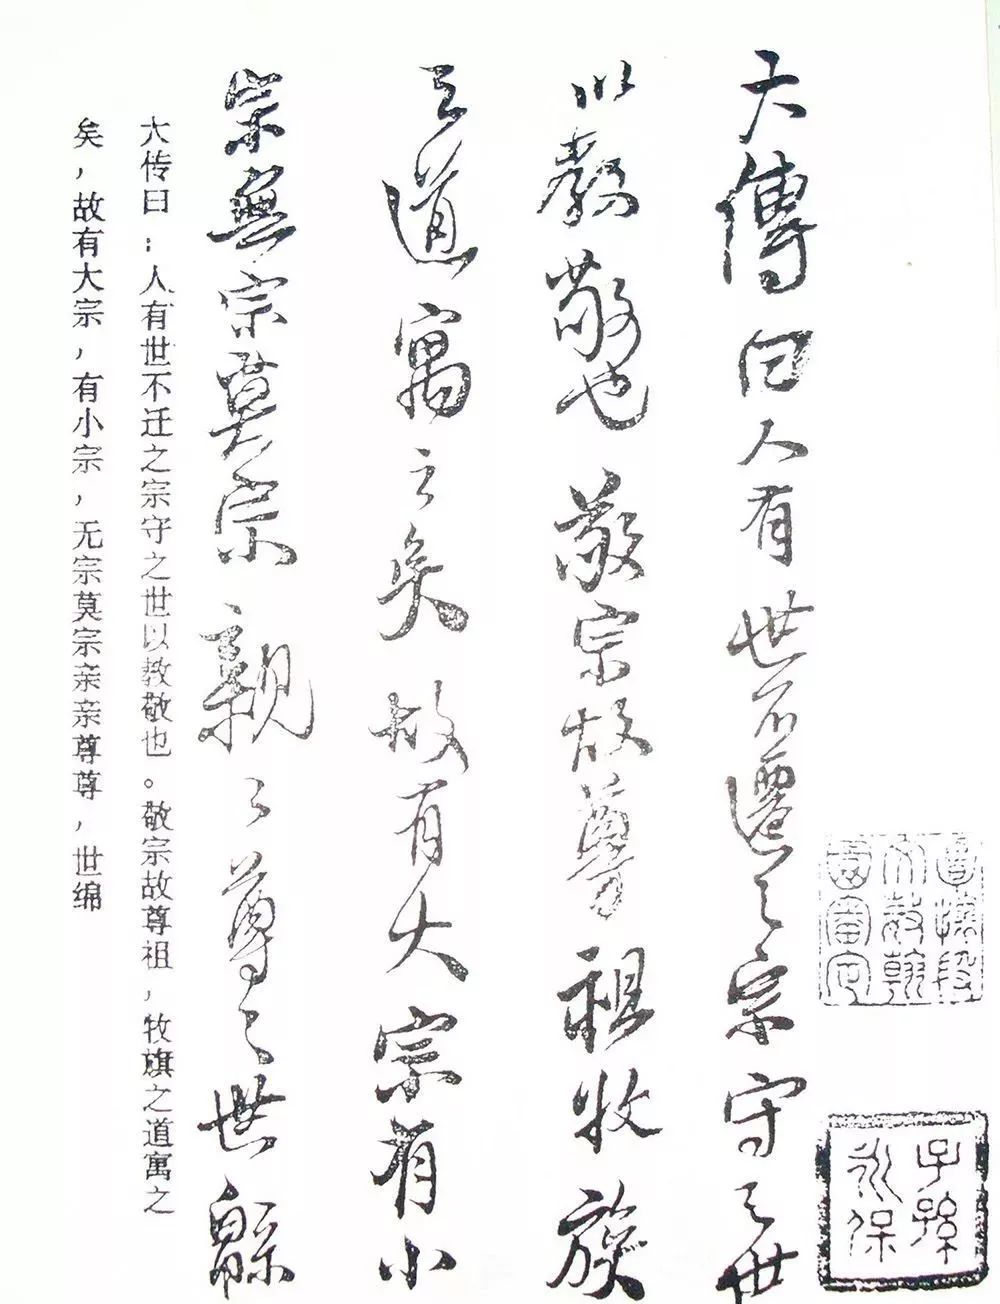 大傳曰人有世不遷之宗守之世
以敎敬也敬宗故尊祖收族
之道寓之矣故有大宗有小
宗無宗莫宗親〻尊〻世緜
大传曰：人有世不迁之宗守之世以教敬也。敬宗故尊祖，牧旗之道寓之
矣，故有大宗，有小宗，无宗莫宗亲亲尊尊，世绵
子孫
永保